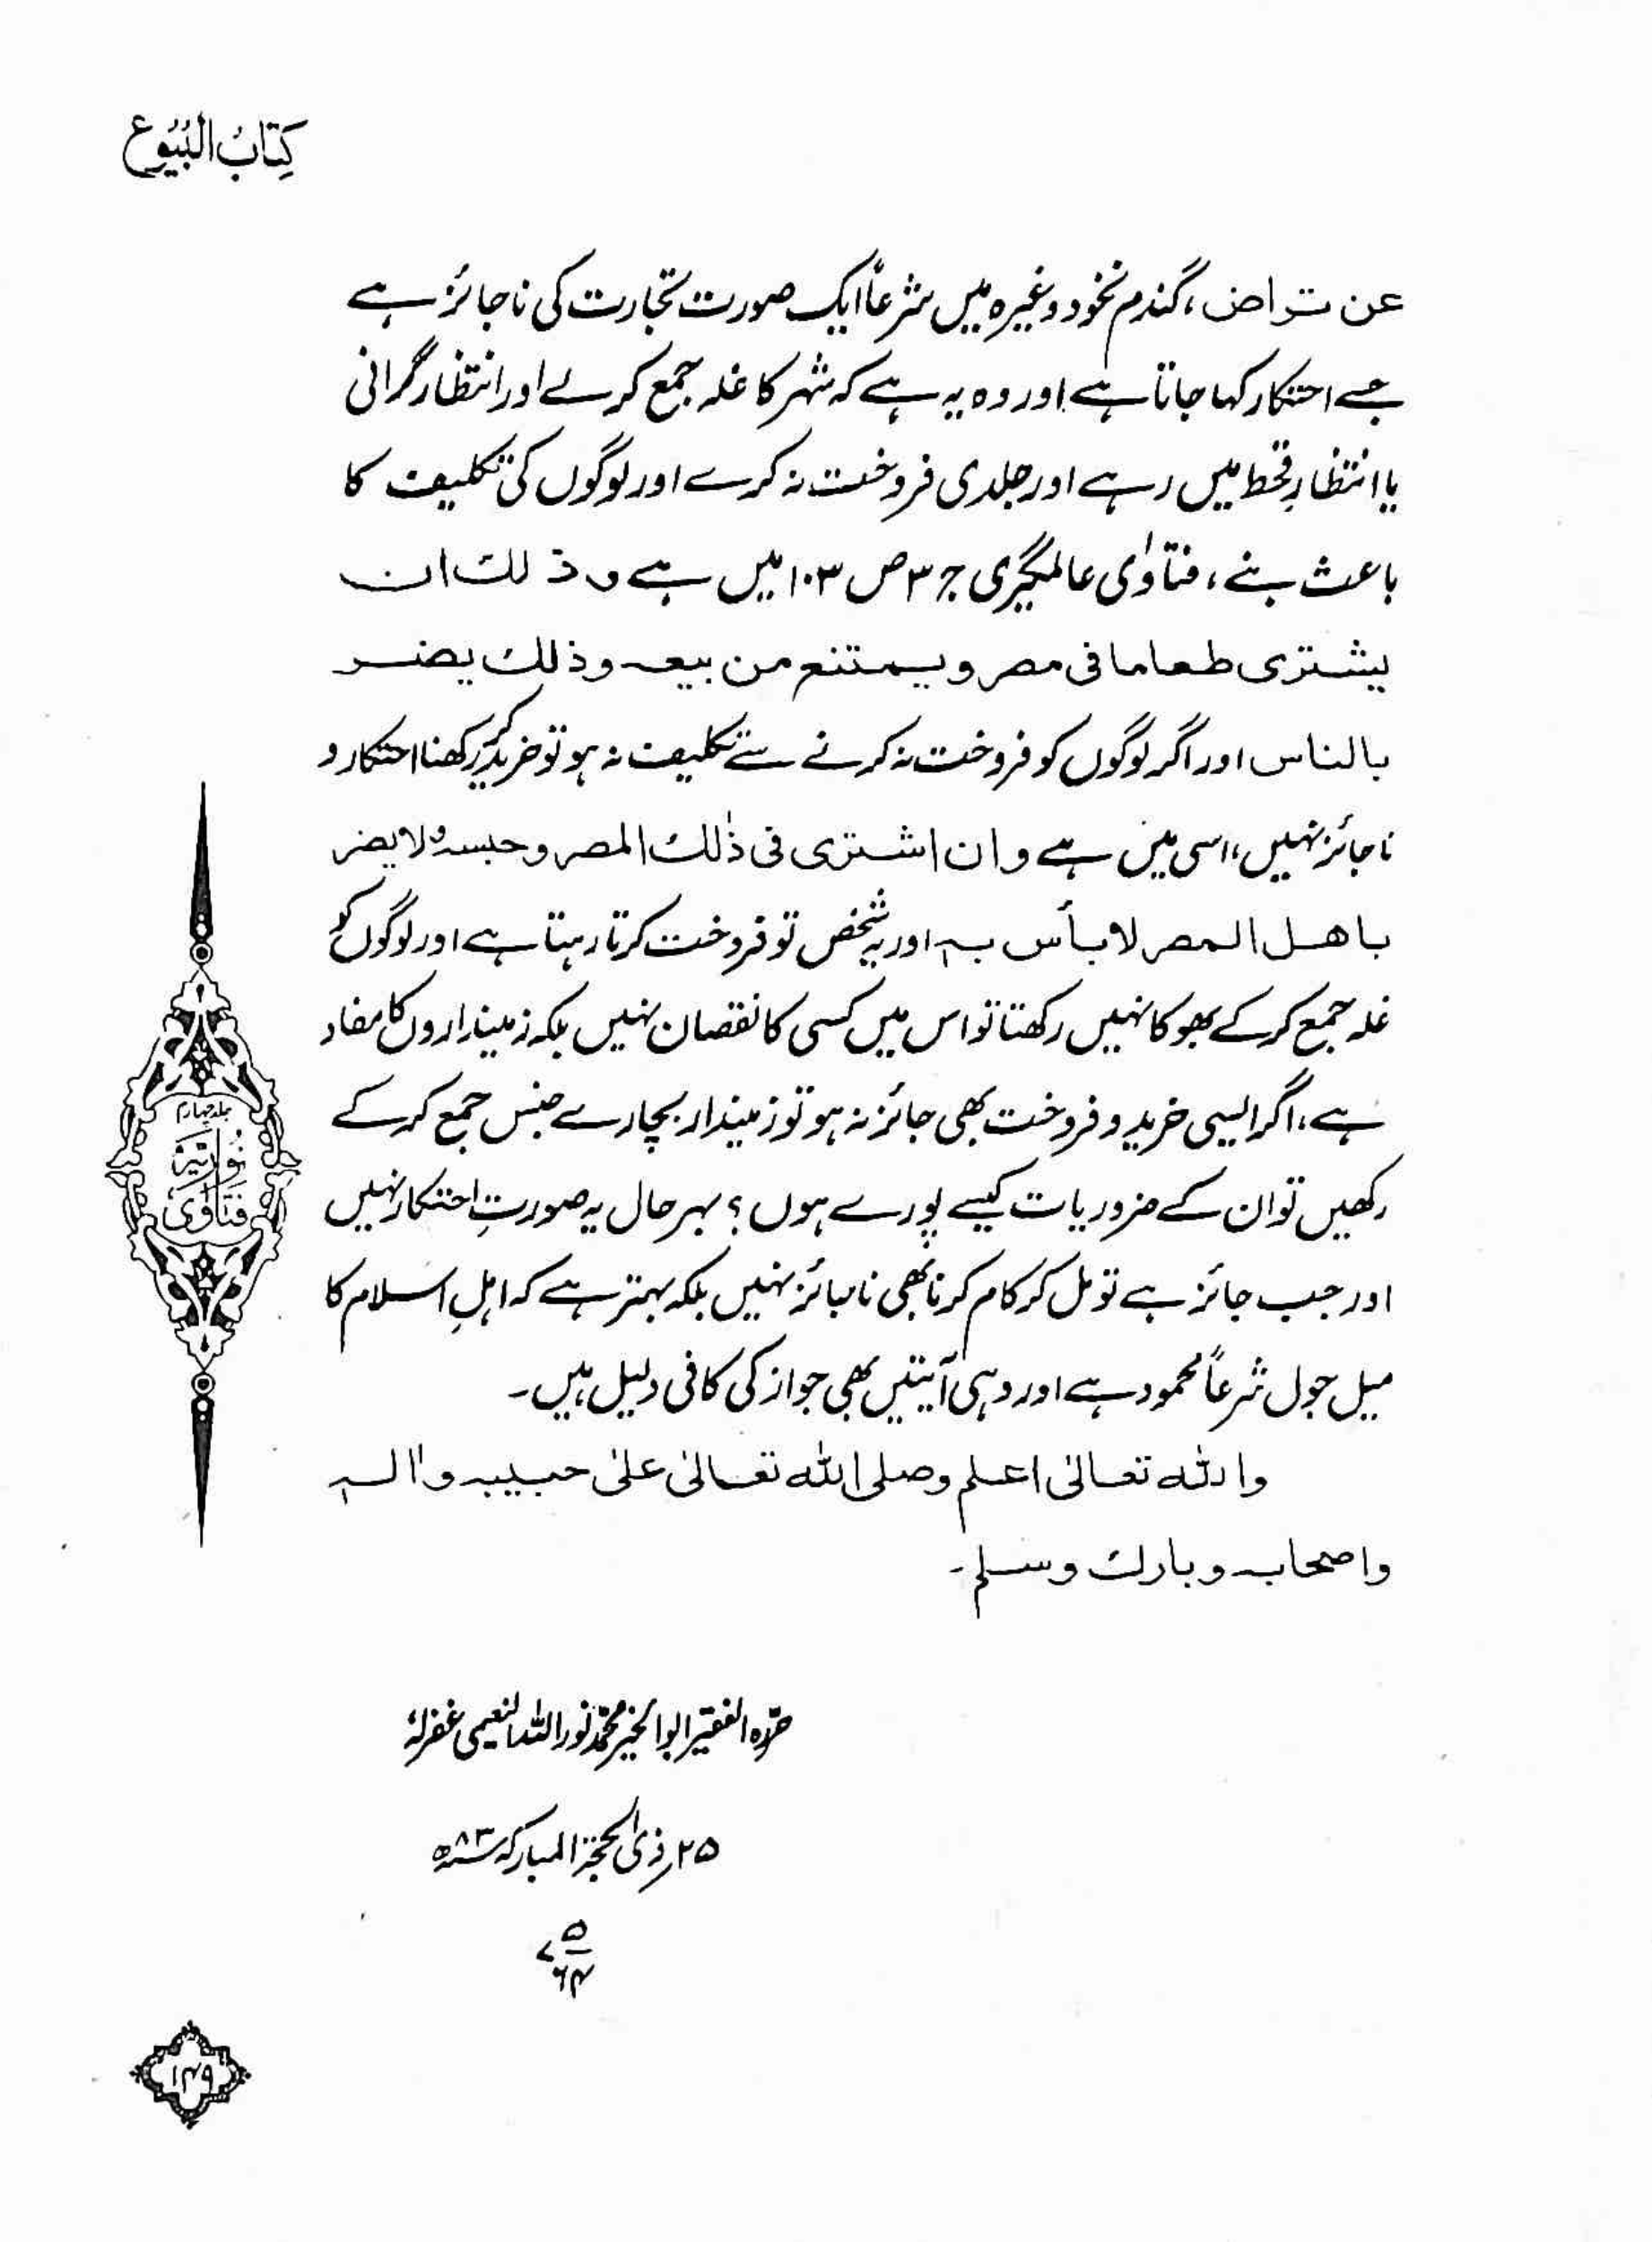 کِتَابُ الْبُیُوْع
عن تراض، گندم نخود وغیرہ میں شرعاً ایک صورت تجارت کی ناجائز ہے
جسے احتکار کہا جاتا ہے اور وہ یہ ہے کہ شہر کا غلہ جمع کر لے اور انتظار گرانی
یا انتظارِ قحط میں رہے اور جلدی فروخت نہ کرے اور لوگوں کی تکلیف کا
باعث بنے، فتاوٰی عالمگیری ج ۳ ص ۱۰۳ میں ہے و ذلك ان
یشتری طعاما فی مصر و یمتنع من بیعہ و ذلك یضر
بالناس اور اگر لوگوں کو فروخت نہ کرنے سے تکلیف نہ ہو تو خرید کر رکھنا احتکار و
ناجائز نہیں، اسی میں ہے و ان اشتری فی ذٰلك المصر و حبسہٗ ولا یضر
باھل المصر لا بأس بہ اور یہ شخص تو فروخت کرتا رہتا ہے اور لوگوں کو
غلہ جمع کر کے بھوکا نہیں رکھتا تو اس میں کسی کا نقصان نہیں بلکہ زمینداروں کا مفاد
ہے، اگر ایسی خرید و فروخت بھی جائز نہ ہو تو زمیندار بچارے جنس جمع کر کے
رکھیں تو ان کے ضروریات کیسے پورے ہوں؟ بہرحال یہ صورتِ احتکار نہیں
اور جب جائز ہے تو مل کر کام کرنا بھی ناجائز نہیں بلکہ بہتر ہے کہ اہلِ اسلام کا
میل جول شرعاً محمود ہے اور وہی آیتیں بھی جواز کی کافی دلیل ہیں۔
واللہ تعالیٰ اعلم وصلی اللہ تعالیٰ علیٰ حبیبہ واٰلہ
واصحابہ وبارك وسلم۔
حرّرہ الفقیر ابوالخیر محمّد نور اللہ النعیمی غفرلہٗ
۲۵؍ذی الحجۃ المبارکہ سنہ ۸۳ھ
۷
۵
۶۴
جلد چہارم
نُوریَہ
فَتَاوٰی
۱۴۹